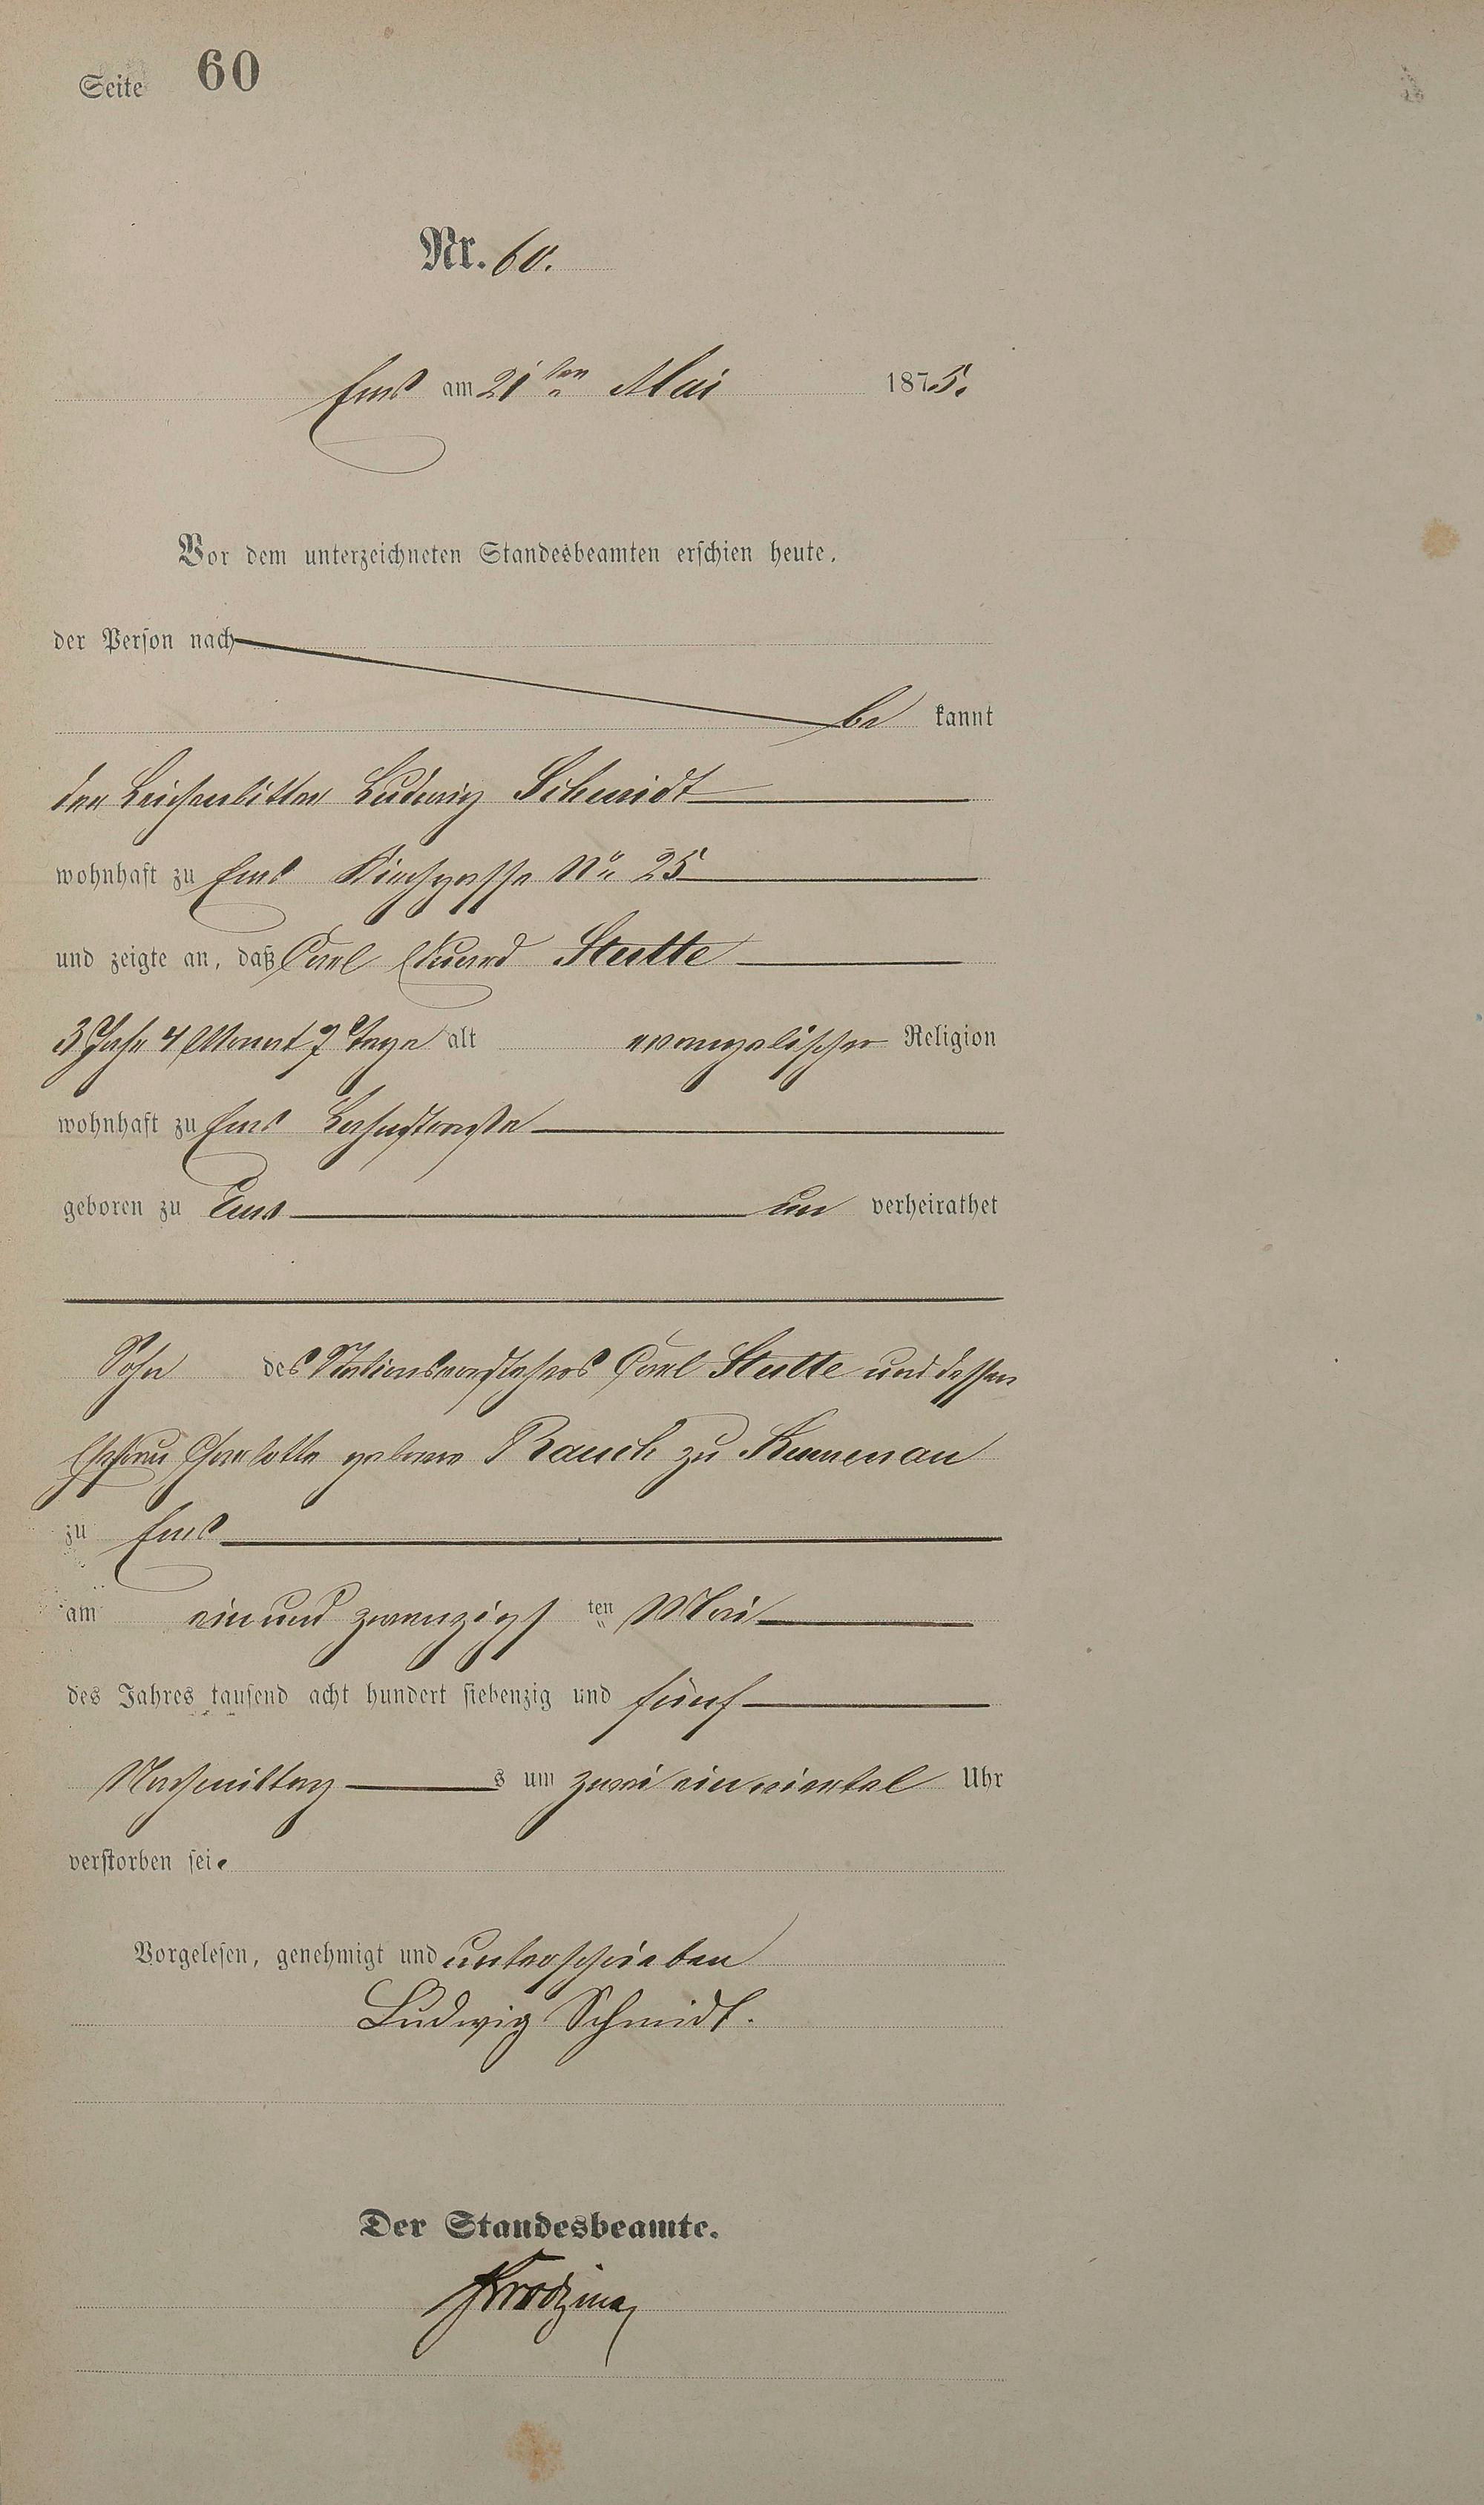 Seite 60
Nr. 60.
Ems am 21ten Mai 1875.
Vor dem unterzeichneten Standesbeamten erschien heute,
der Person nach
be kannt
der Leichenbitter Ludwig Schmidt
wohnhaft zu Ems Kirchgasse No 25
und zeigte an, daß Carl Eduard Stutte
3 Jahr 4 Monat 7 Tage alt evangelischer Religion
wohnhaft zu Ems Lahnstraße
geboren zu Ems un verheirathet
Sohn des Stationsvorstehers Carl Stutte und dessen
Ehefrau Charlotte geborne Rauch zu
zu Ems
am ein und zwanzigsten Mai
des Jahres tausend acht hundert siebenzig und fünf
Nachmittags um zwei ein viertel Uhr
verstorben sei.
Vorgelesen, genehmigt und unterschrieben
Ludwig Schmidt.
Der Standesbeamte.